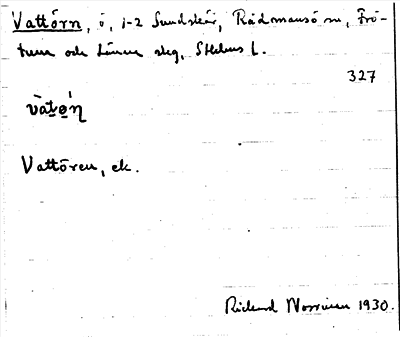 Vattörn, ö, j-2 Sundskär, Rådmansö sn, Frö-
tuna och Länna skg, Sthlms l.
327
vàtǫ́n
Vattören, ek.
Rickard Norrman 1930.